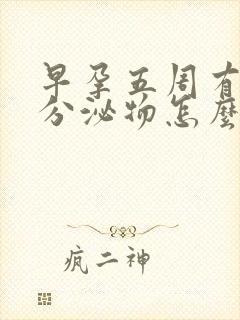 早孕五周有
分泌物怎麼
疯二神